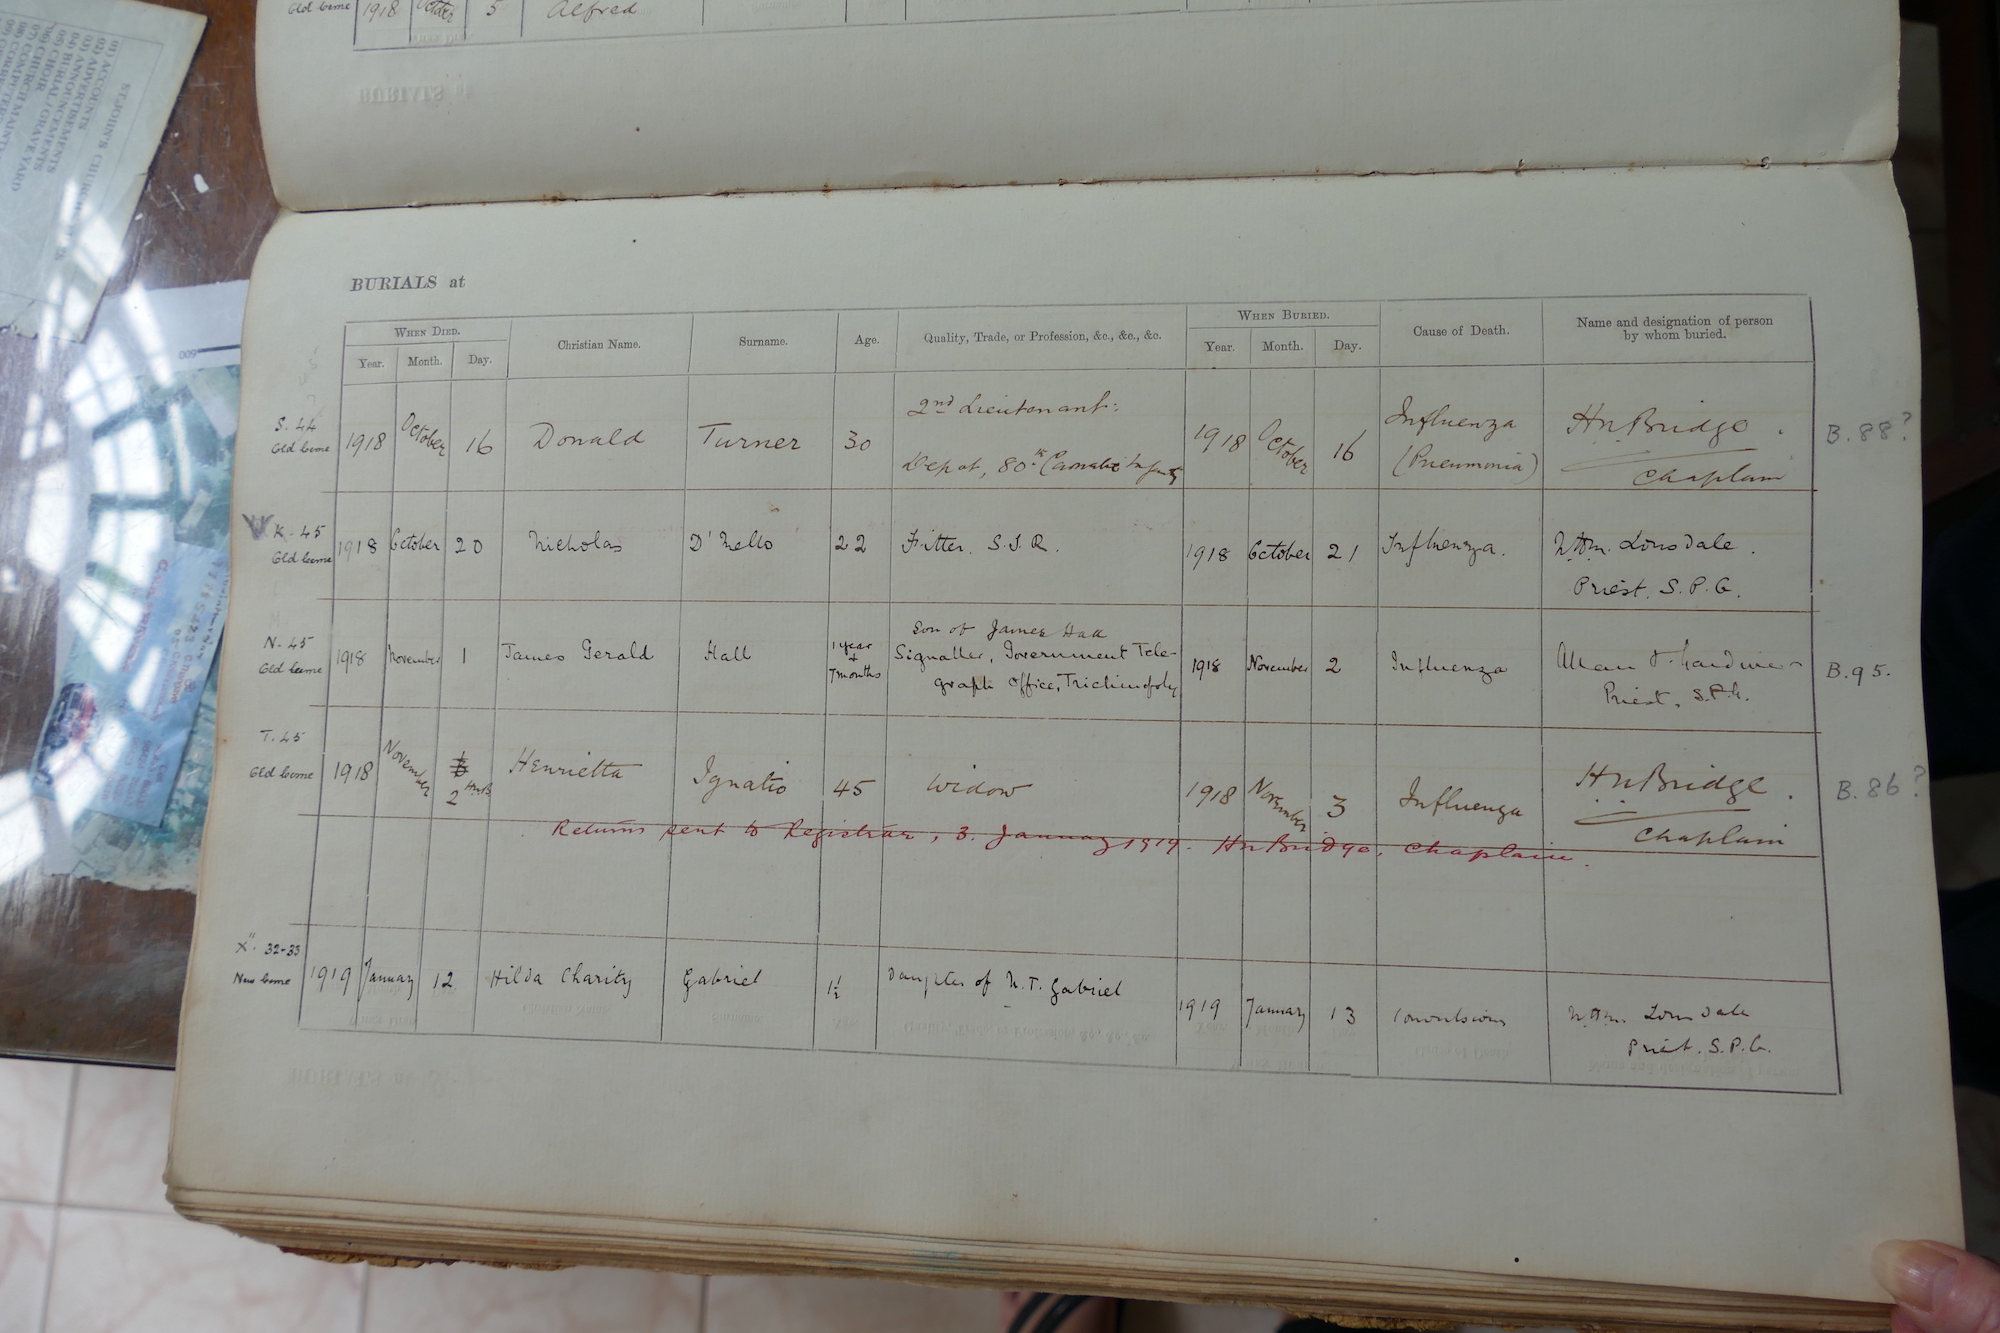 Old Ceme 1918 October 5 Alfred
ST. JOHN'S CHURCH
01) ACCOUNTS
02) ADVERTISEMENTS
03) ANNOUNCEMENTS
04) BURIAL / GRAVEYARD
BURIALS at
WHEN DIED. Christian Name. Surname. Age. Quality, Trade, or Profession, &c., &c., &c. WHEN BURIED. Cause of Death. Name and designation of person by whom buried.
Year. Month. Day. Year. Month. Day.
S. 44
Old Ceme 1918 October 16 Donald Turner 30 2nd Lieutenant: 1918 October 16 Influenza HN Bridge B. 88?
Depot, 80th Carnatic Infantry (Pneumonia) Chaplain
K. 45
Old Ceme 1918 October 20 Nicholas D'Mello 22 Fitter. S.I.R. 1918 October 21 Influenza. Lonsdale.
Priest, S.P.G.
N. 45 Son of James Hall
Old Ceme 1918 November 1 James Gerald Hall 1 year + 7 months Signaller, Government Tele- 1918 November 2 Influenza B. 95.
graph Office, Trichinopoly Priest, S.P.G.
T. 45
Old Ceme 1918 November 2 HNB Henrietta Ignatio 45 Widow 1918 November 3 Influenza HN Bridge. B. 86?
Chaplain
Returns sent to Registrar, 3. January 1919. HN Bridge, Chaplain.
X". 32-33
New Ceme 1919 January 12 Hilda Charity Gabriel 1½ Daughter of N. T. Gabriel 1919 January 13 Convulsions Lonsdale
Priest. S.P.G.